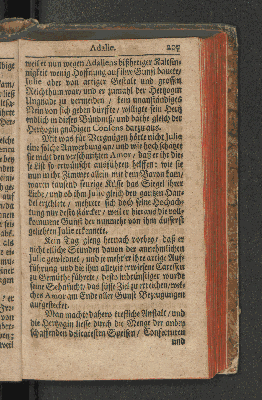 Adalie. 205
weil er nun wegen Adaliens bißheriger Kaltsin-
nigkeit wenig Hoffnung auf ihre Gunst bauete,
Julie aber von artiger Gestalt und grossem
Reichthum war, und er zumahl der Hertzogin
Ungnade zu vermeiden / kein unanständiges
Nein von sich geben durffte, willigte sein Hertz
endlich in dieses Bündniß, und bathe gleich der
Hertzogin gnädigen Consens darzu aus.
Mit was für Vergnügen hörte nicht Julie
eine solche Anwerbung an; und wie hoch schatzte
sie nicht den verschmitzten Amor, daß er ihr die-
se List so erwünscht ausführen helffen: wie sie
nun in ihr Zimmer allein mit dem Baron kam,
waren tausend feurige Küsse das Siegel ihrer
Liebe, und ob ihm Julie gleich den gantzen Han-
del erzehlete, mehrete sich doch seine Hochach-
tung nur desto stärcker, weil er hieraus die voll-
kommene Gunst der von ihm nun äuserst
geliebten Julie erkennete.
Kein Tag gieng hernach vorbey, daß er
nicht etliche Stunden davon der annehmlichen
Julie gewiedmet, und je mehr er ihre artige Auf-
führung und die ihm allezeit erwiesene Caressen
zu Gemüthe führete, desto inbrünstiger wurde
seine Sehnsucht, das süsse Ziel zu erreichen, wel-
ches Amor am Ende aller Gunst-Bezeugungen
aufgestecket.
Man machte dahero treffliche Anstalt, und
die Hertzogin liesse durch die Menge der anbey
schaffenden delicatesten Speisen, Confituren
und